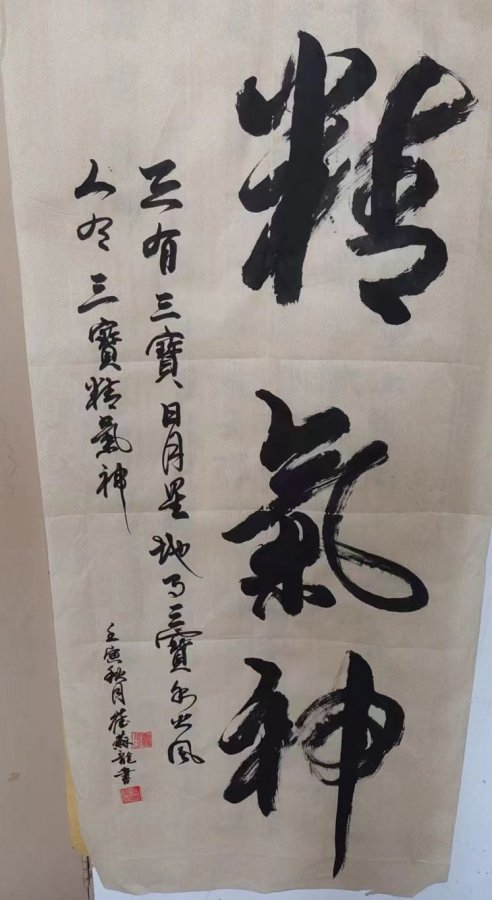 精氣神
天有三寶日月星地有三寶水火風
人有三寶精氣神
壬寅秋月崔蘇龍書